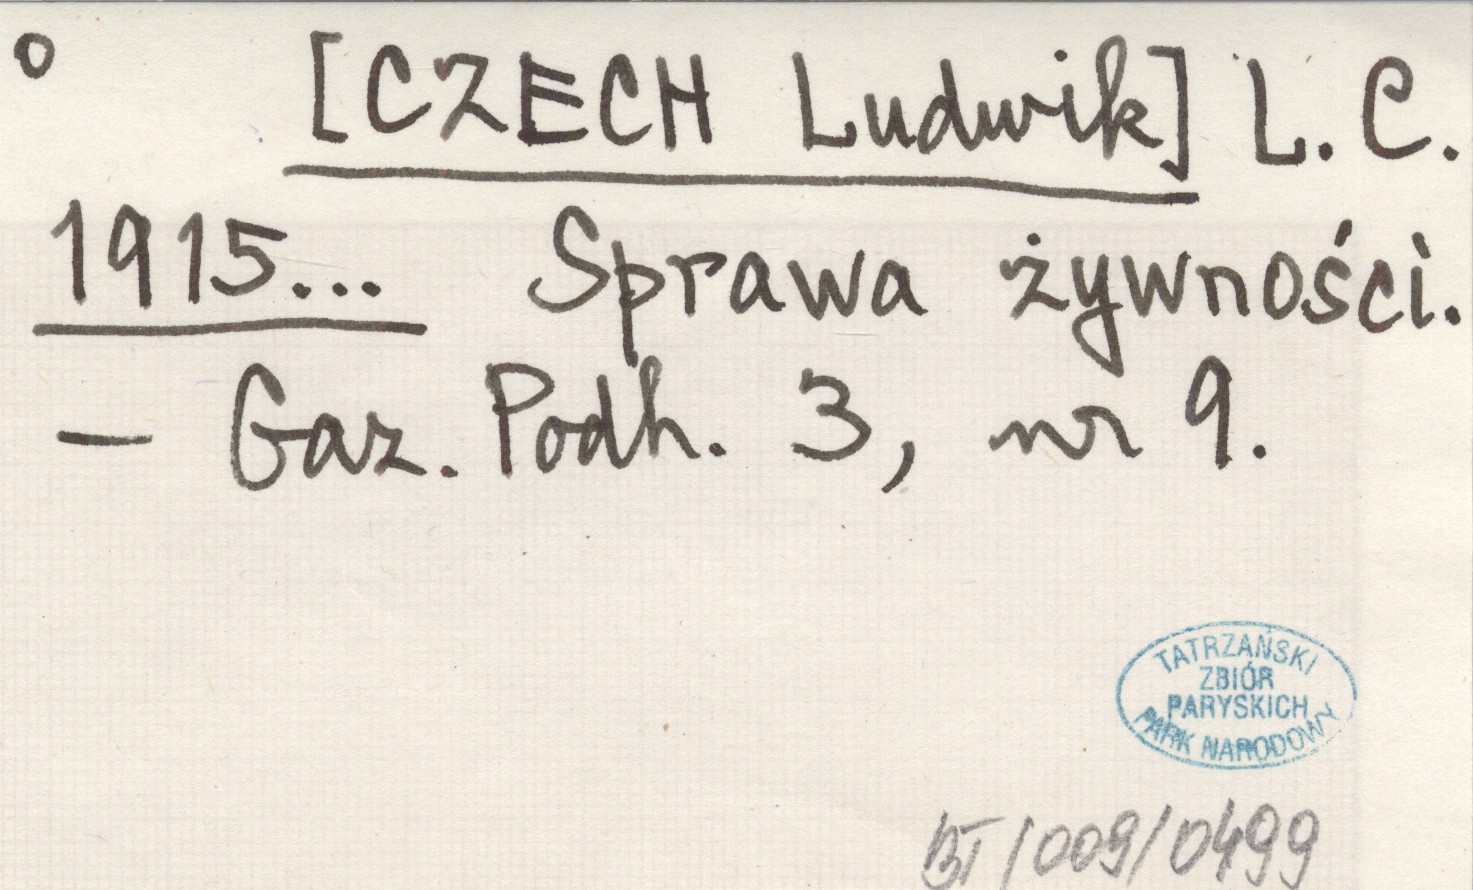 o [CZECH Ludwik] L. C.
1915... Sprawa żywności.
— Gaz. Podh. 3, nr 9.
TATRZAŃSKI
ZBIÓR
PARYSKICH
PARK NARODOWY
BT/009/0499